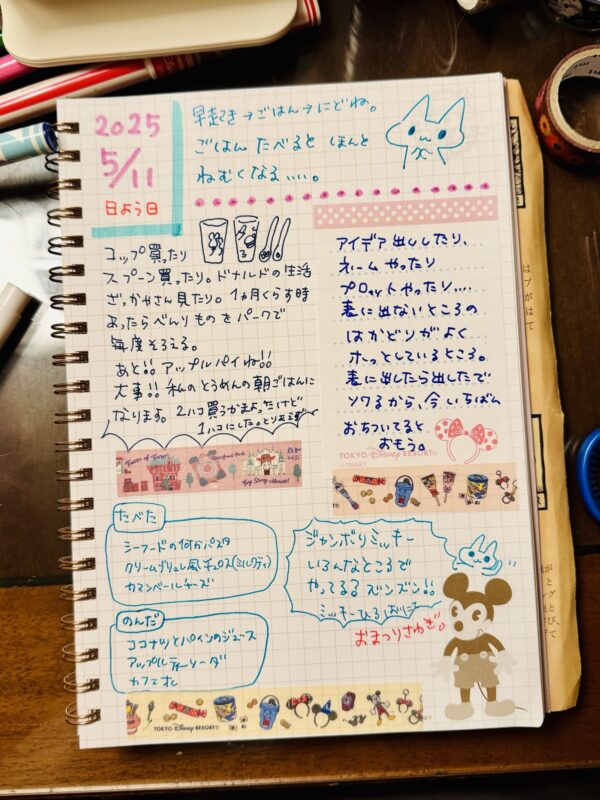 2025
5/11
日よう日
早起き→ごはん→にどね。
ごはん たべると ほんと
ねむくなる....。
コップ買ったり
スプーン買ったり。ドナルドの生活
ざっかやさん見たり。1ヵ月くらす時
あったらべんりものをパークで
毎度そろえる。
あと!! アップルパイね!!
大事!! 私のとうめんの朝ごはんに
なります。2ハコ買うかまよったけど
1ハコにした。とりあえず
Tower of Terror
Toy Story Mania!
アイデア出ししたり、
ネームやったり
プロットやったり....
表に出ないところの
はかどりがよく
ホッとしているところ。
表に出したら出したで
ソワるから、今いちばん
おちついてると
おもう。
TOKYO Disney RESORT®
© DISNEY
たべた
シーフードの何かパスタ
クリームブリュレ風チュロス(ミルクティ)
カマンベールチーズ
のんだ
ココナッツとパインのジュース
アップルティーソーダ
カフェオレ
ジャンボリミッキー
いろんなところで
やってる? ズンズン!!
おまつりさわぎ。
TOKYO Disney RESORT®